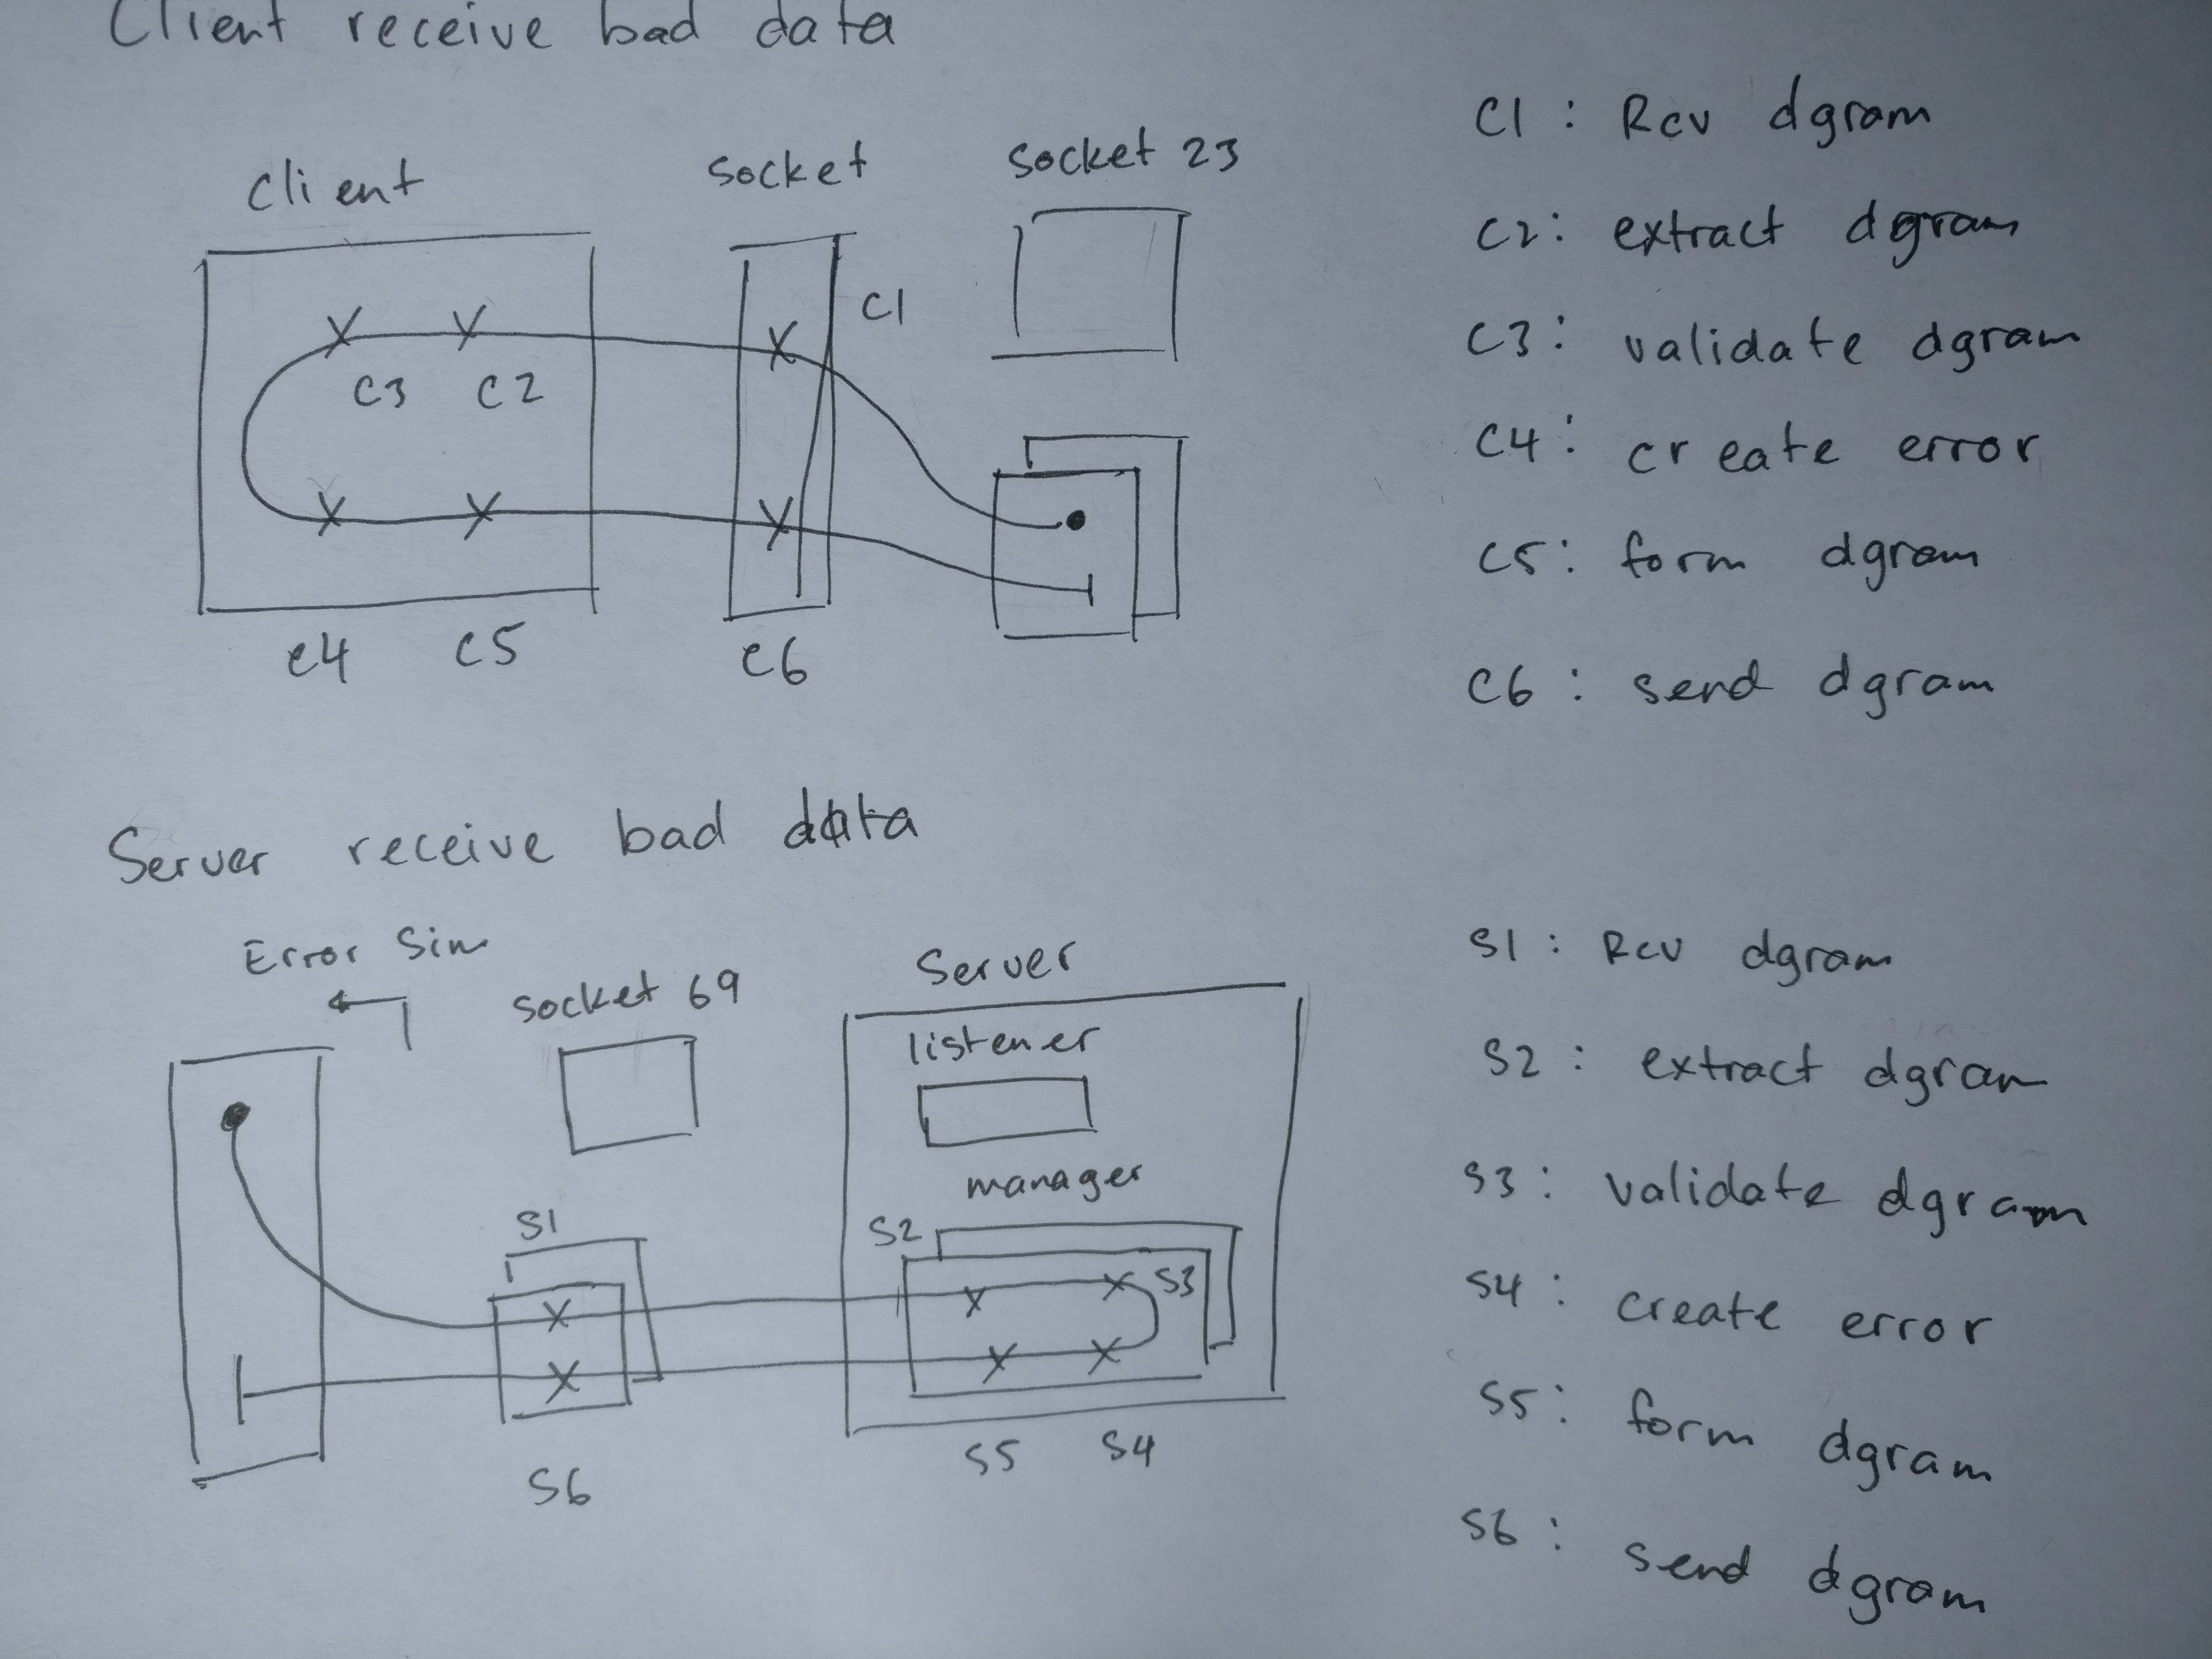 Client receive bad data
Client
Socket
Socket 23
C1
C3 C2
C4 C5 C6
C1 : Rcv dgram
C2 : extract dgram
C3 : validate dgram
C4 : create error
C5 : form dgram
C6 : send dgram
Server receive bad data
Error Sim
Socket 69
Server
listener
manager
S1
S2
S3
S5 S4
S6
S1 : Rcv dgram
S2 : extract dgram
S3 : validate dgram
S4 : create error
S5 : form dgram
S6 : send dgram